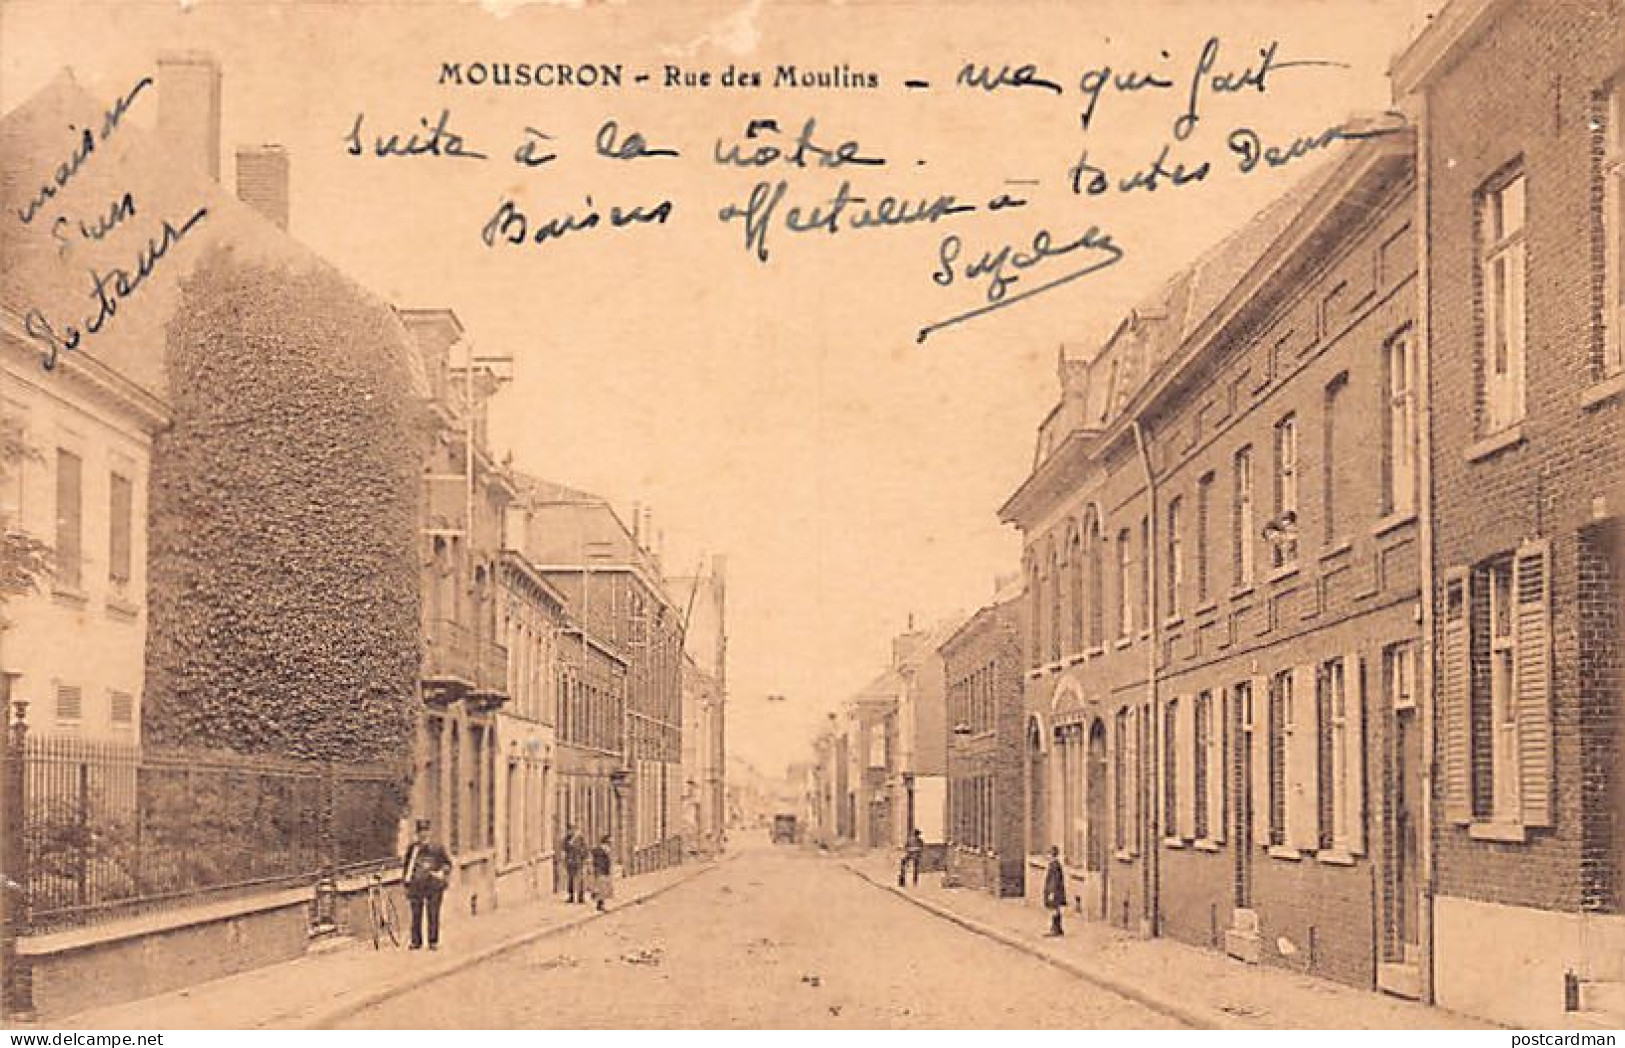 MOUSCRON - Rue des Moulins - rue qui fait
suite à la nôtre.
Baisers affectueux à toutes Deux
maison
d'un
Docteur
postcardman